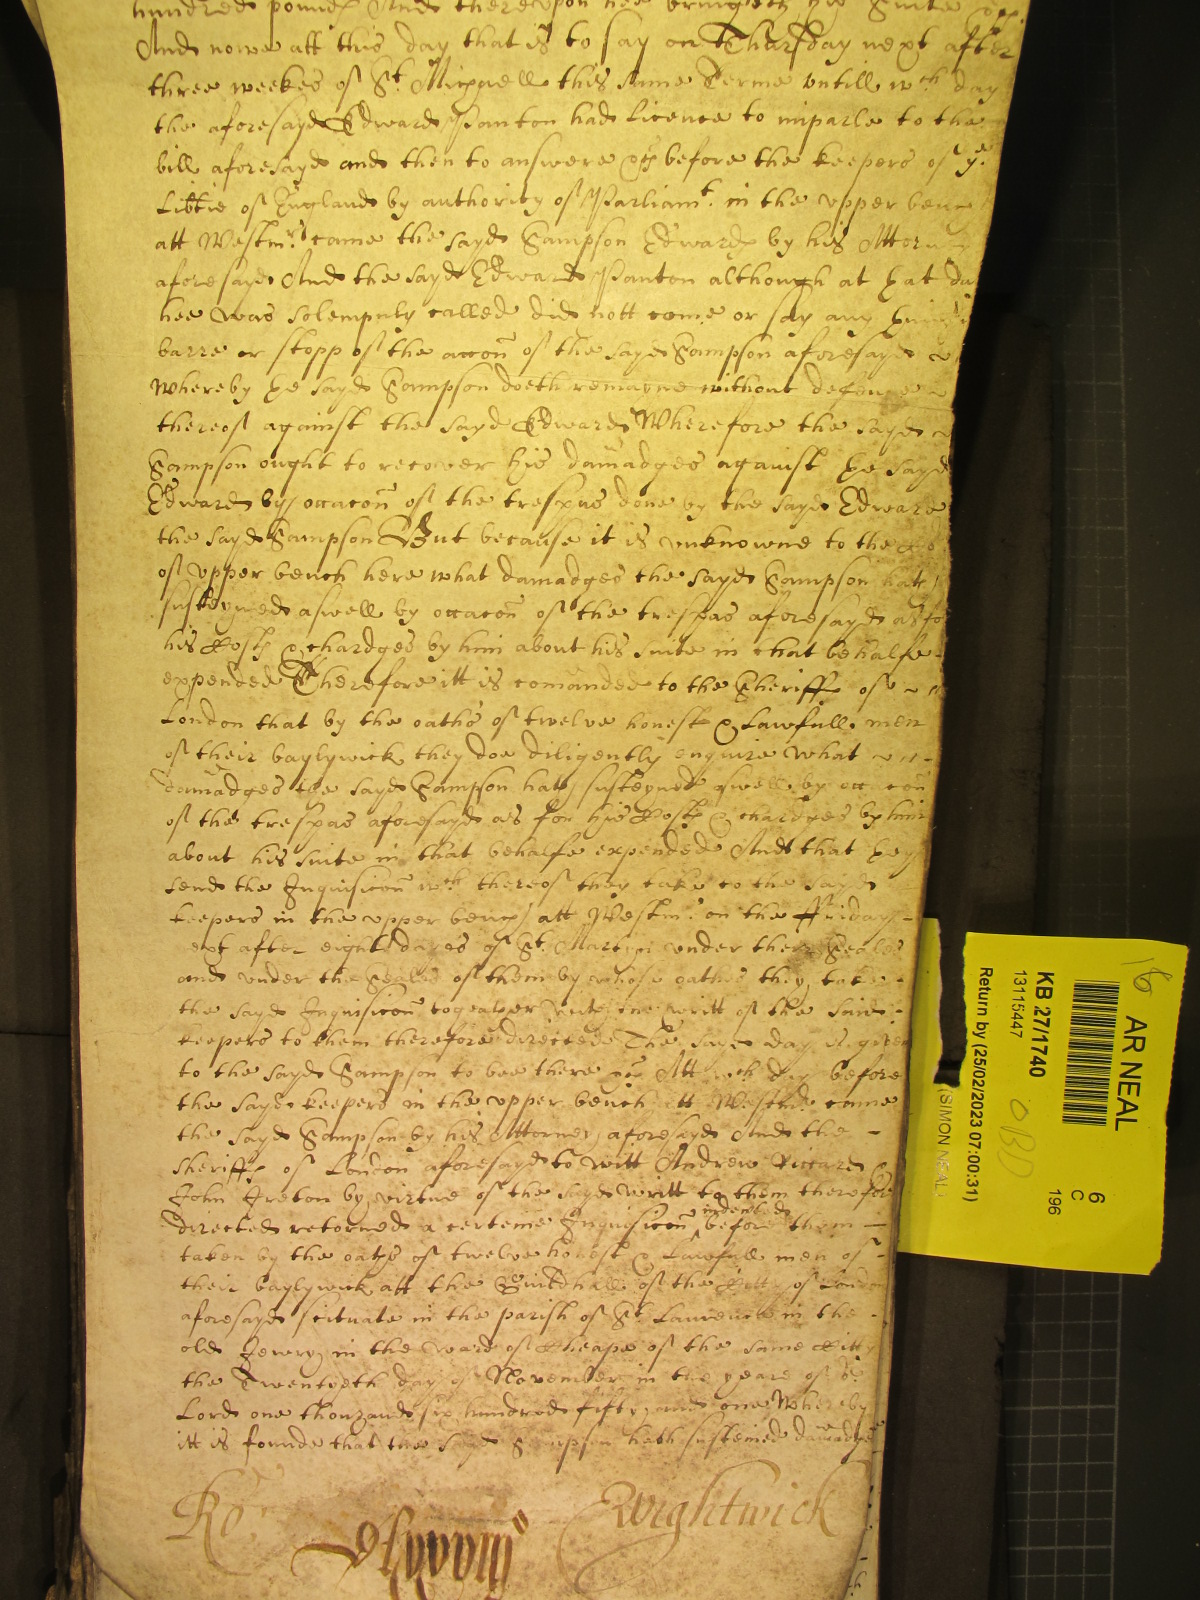 hundred pounds And thereupon hee bringeth his Suite &c
And nowe att this day that is to say on Thursday next after
three weekes of St. Michaell this same Terme untill wch day
the aforesayd Edward Panton had licence to imparle to the
bill aforesayd and then to answere &c before the keepers of ye
Libtie of England by authority of Parliamt. in the upper bench
att Westmr. came the sayd Sampson Edwards by his Attorney
aforesayd And the sayd Edward Panton although at that day
hee was solempnly called did nott come or say any thing in
barre or stopp of the accon of the sayd Sampson aforesayd
Whereby the sayd Sampson doeth remayne without defence
thereof against the sayd Edward Wherefore the sayd
Sampson ought to recover his damadges against the sayd
Edward by occacon of the trespas done by the sayd Edward
the sayd Sampson But because it is unknowne to the
of upper bench here what damadges the sayd Sampson hath
susteyned aswell by occacon of the trespas aforesayd as for
his Costs & chardges by him about his suite in that behalfe
expended Therefore itt is comanded to the Sheriffs of
London that by the oaths of twelve honest & Lawfull men
of their baylywick they doe diligently enquire What
damadges the sayd Sampson hath susteyned aswell by occacon
of the trespas aforesayd as for his Costs & chardges by him
about his suite in that behalfe expended And that they
send the Inquisicon wch thereof they take to the sayd
keepers in the upper bench att Westmr. on the ffriday
next after eight dayes of St. Martyn under their Seales
and under the Seales of them by whose oathes they take
the sayd Inquisicon togeather with the writt of the said
keepers to them therefore directed The same day is given
to the sayd Sampson to bee there &c Att wch day before
the sayd keepers in the upper bench att Westmr. came
the sayd Sampson by his Attorney aforesayd And the
sheriffs of London aforesayd to witt Andrew Riccard &
John Ireton by virtue of the sayd writt to them therefore
directed retorned a certeine Inquisicon indented before them
taken by the oaths of twelve honest & Lawfull men of
their baylywick att the Guildhall of the Citty of London
aforesayd scituate in the parish of St. Laurence in the
old Jewry in the Ward of Cheape of the same Citty
the Twentyeth day of November in the yeare of or.
Lord one thouzand six hundred fifty and one Whereby
itt is founde that the sayd Sampson hath susteined damadges
Ro. Wightwick
AR NEAL
KB 27/1740
13115447
Return by (25/02/2023 07:00:31)
(SIMON NEAL)
6
C
196
16
OBD